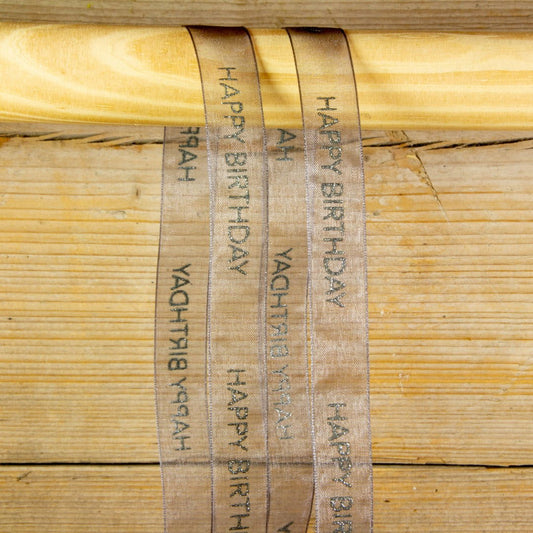 HAPPY
HAPPY BIRTHDAY
HAPPY BIRTHDAY
HAPPY BIRTHDAY
HAPPY BIRTHDAY
HAPPY BIRTH
HAPPY BIRTHDAY
HAPPY BIRT